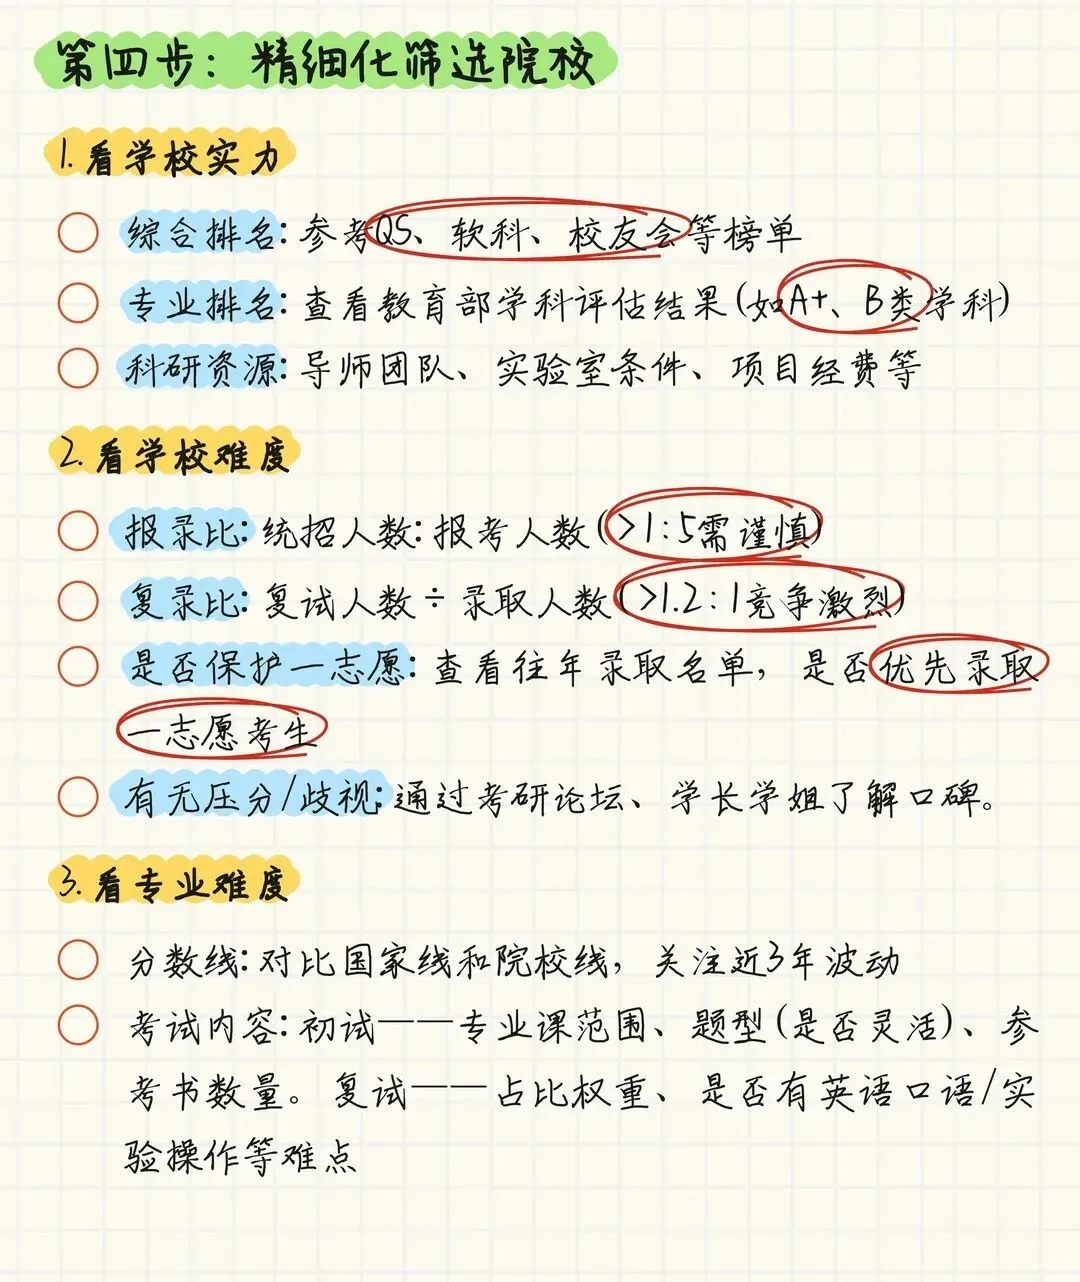 第四步：精细化筛选院校
1.看学校实力
综合排名：参考QS、软科、校友会等榜单
专业排名：查看教育部学科评估结果(如A+、B类学科)
科研资源：导师团队、实验室条件、项目经费等
2.看学校难度
报录比：统招人数：报考人数(>1:5需谨慎)
复录比：复试人数÷录取人数(>1.2:1竞争激烈)
是否保护一志愿：查看往年录取名单，是否优先录取
一志愿考生
有无压分/歧视：通过考研论坛、学长学姐了解口碑。
3.看专业难度
分数线：对比国家线和院校线，关注近3年波动
考试内容：初试——专业课范围、题型(是否灵活)、参
考书数量。复试——占比权重、是否有英语口语/实
验操作等难点